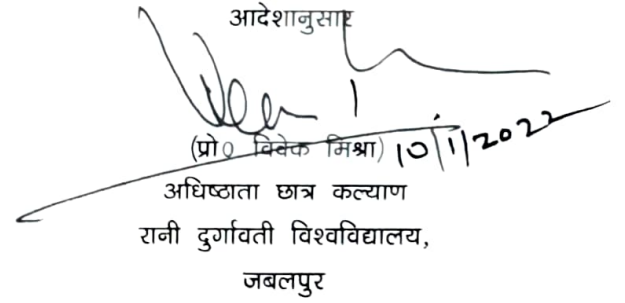 आदेशानुसार
(प्रो० विवेक मिश्रा) 10/1/2022
अधिष्ठाता छात्र कल्याण
रानी दुर्गावती विश्वविद्यालय,
जबलपुर